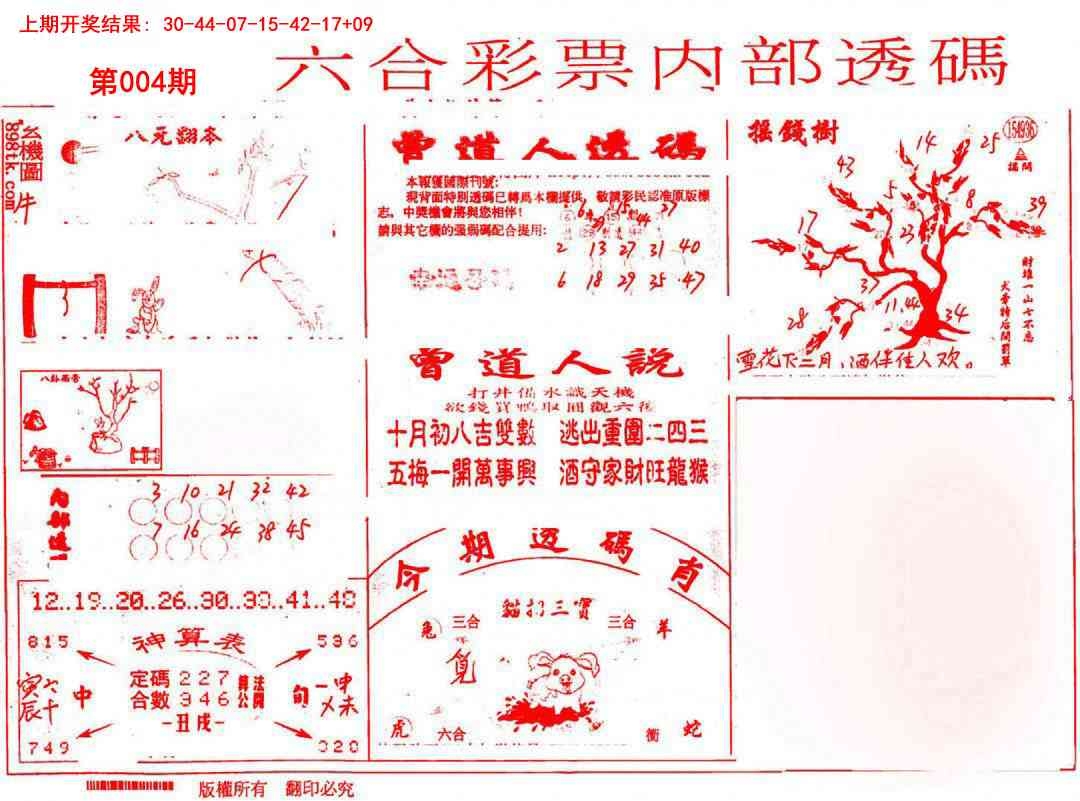 上期开奖结果: 30-44-07-15-42-17+09
第004期
六合彩票内部透碼
玄機圖
898tk.com
牛
八元翻本
曾道人透碼
本報獲國際刊號:
現背面特別透碼已轉爲本欄提供，敬請彩民認准原版欄
志，中獎機會將與您相伴!
請與其它欄的强弱碼配合提用:
2 13 27 31 40
6 18 29 35 47
搖錢樹
154936
14
25
43
5
8
39
17
23
37
11.44
34
28
財堆一山七不忘
雪花下三月，酒伴佳人欢。
曾道人說
打井備水識天機
十月初八吉雙數 逃出重圍二四三
五梅一開萬事興 酒守家財旺龍猴
3 10 21 32 42
7 16 24 38 45
12..19..20..26..30..33..41..48
815
536
神算表
定碼 227
合數 346
-丑戌-
算公
法開
中
旬
749
020
今期透碼肖
貓打三寶
兔
三合
三合
羊
覓
虎
六合
衝
蛇
版權所有 翻印必究